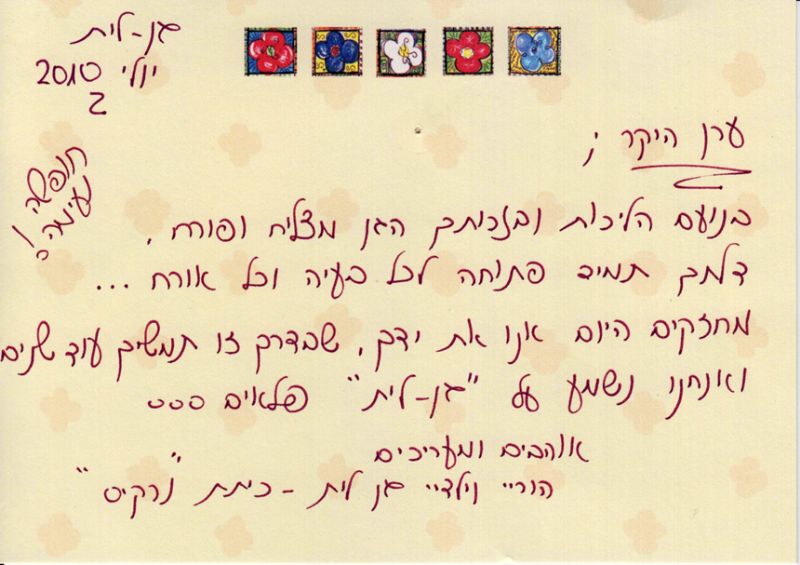 גן-לית
יולי 2010
ב
חופשה
נעימה!
ערן היקר;
בנועם הליכות ובזכותך הגן מצליח ופורח,
דלתך תמיד פתוחה לכל בעיה וכל אורח...
מחזקים היום אנו את ידך, שבדרך זו תמשיך עוד שנים
ואנחנו נשמע על "גן-לית" פלאים...
אוהבים ומעריכים
הוריי וילדיי גן לית - כיתת "נרקיס"